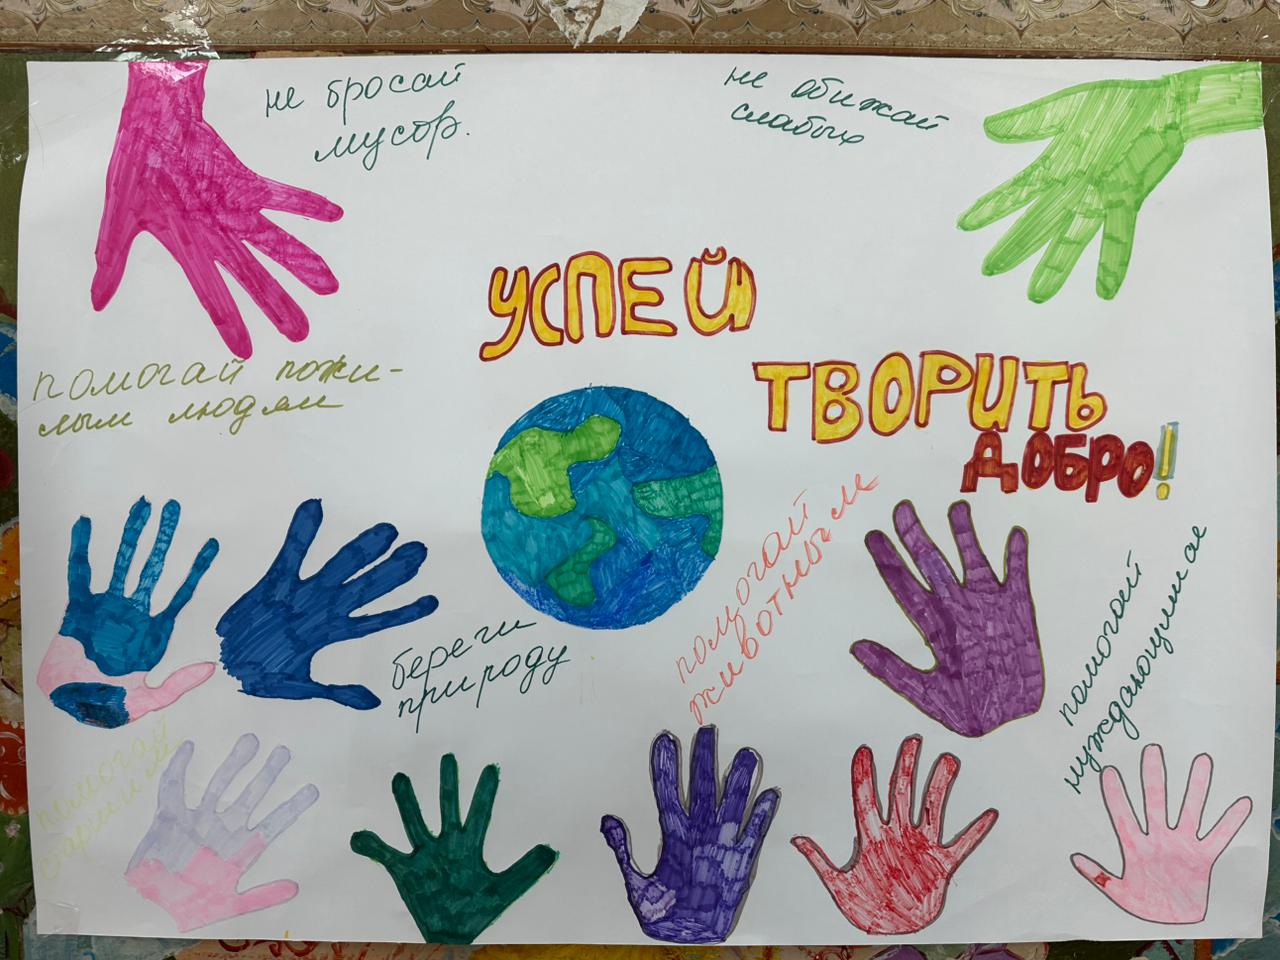 не бросай
мусор.
не обижай
слабых
УСПЕЙ
ТВОРИТЬ
ДОБРО!
помогай пожи-
лым людям
береги
природу
помогай
животным
помогай
нуждающимся
помогай
старшим